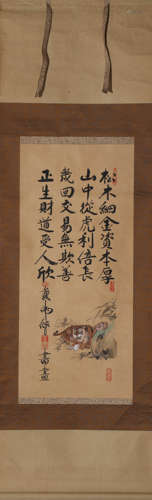 松木細金資本厚
山中從虎利倍長
幾回交易無欺善
正生財道受人欣
書畫